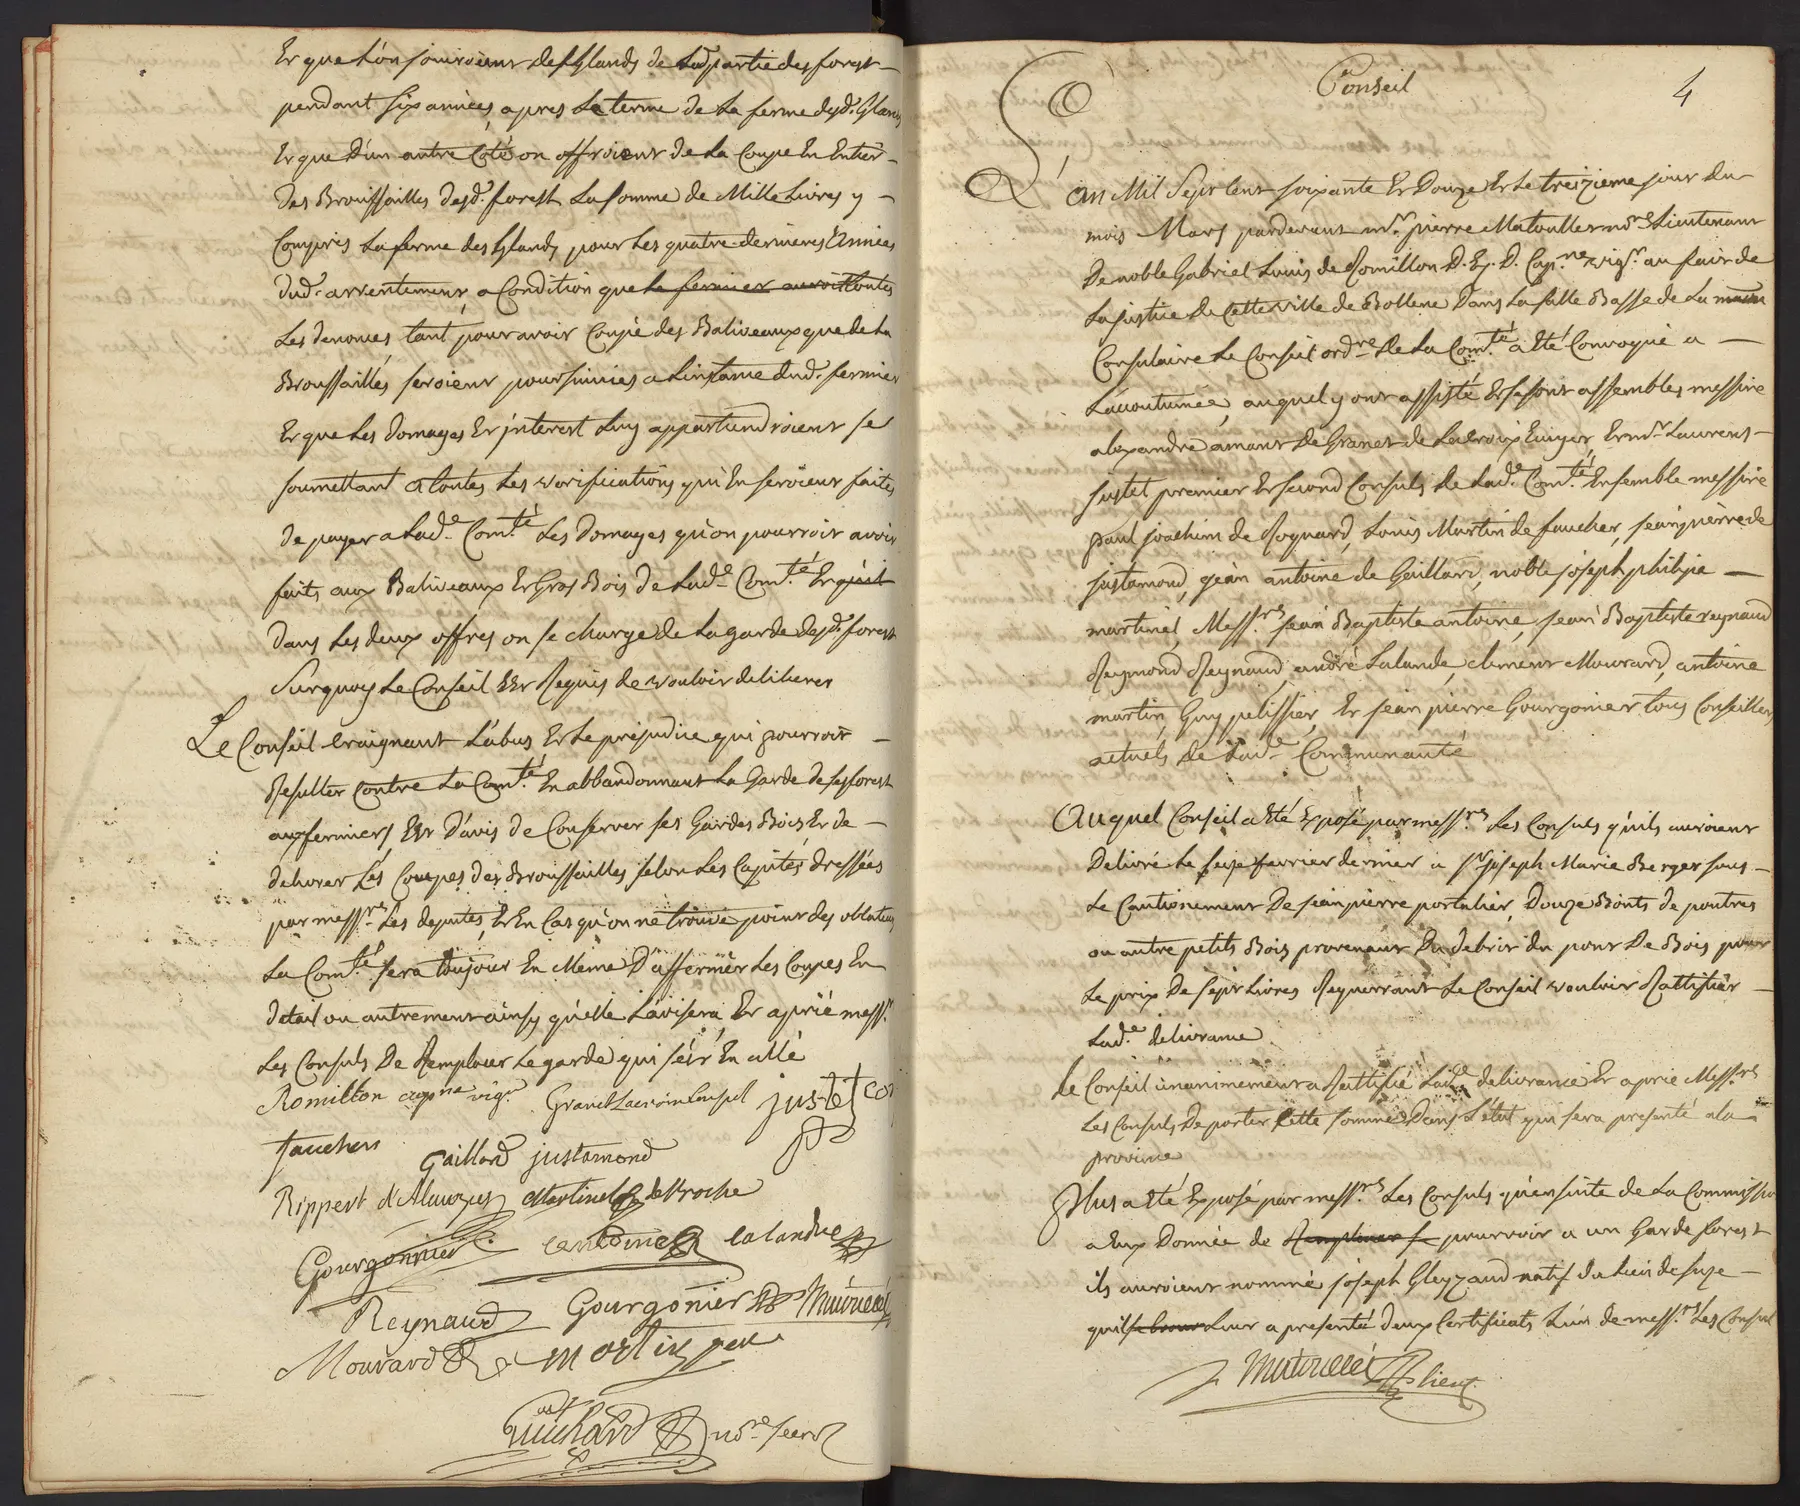 Et que l'on jouiroient des Glands de lad. partie des forest
pendant six années apres le terme de la ferme desd. Glands
Et que d'un autre Coté on offroient de la Coupe En Entier
des Broussailles desd. forest la somme de Mille Livres y
Compris la ferme des Glands pour les quatre dernieres Années
dud. arrentement, a Condition que le fermier auroit toutes
Les denonces tant pour avoir Coupé des Baliveaux que de la
Broussailles seroient poursuivies a linstance dud. fermier
Et que les domages Et jnterest luy appartiendroient se
soumettant a toutes les verifications qui En seroient faites
de payer a lad.e Com.té les domages qu'on pourroit avoir
faits aux Baliveaux Et Gros Bois de lad.e Com.té Et qu'il
dans les deux offres on se charge de la garde desd. forest
Surquoy le Conseil Est Requis de vouloir deliberer
Le Conseil Craignant l'abus Et le prejudice qui pourroit
Resulter Contre la Com.té En abbandonnant la Garde de ses forest
aux fermiers Est D'avis de Conserver ses Gardes Bois Et de
delivrer Les Coupes des Broussailles selon les Capités dressées
par mess.rs les deputés, Et En Cas qu'on ne trouve point des oblateurs
La Com.té sera toujour En Meme D'affermer les Coupes En
detail ou autrement ainsy qu'elle l'avisera, Et a prié mess.rs
Les Consuls De Remplacer le garde qui s'est En allé
Romillon cap.ne vig.r Granet Lacroix Consul justet con
faucher Gaillard justamond
Rippert d'Alauzier Martinel de Proche
Gourgonnier antoine lalande
Reynaud Gourgonier
Mourard martin
Guichard no.re secre
Conseil 4
L'an Mil Sept Cent soixante Et Douze Et le treizieme jour du
mois Mars pardevant m.r pierre Matoulles no.re Lieutenant
De noble Gabriel Louis de Romillon D. E. D. Cap.ne vig.r au fait de
La justice de Cette ville de Bollene Dans la salle Basse de la maison
Consulaire le Conseil ord.re de la Com.té a Eté Convoqué a
Laccoutumée, auquel y ont assisté Et se sont assembles messire
alexandre amant De Granet de Lacroix Ecuyer, Et m.r Laurens
justet premier Et second Consuls de lad.e Com.té Ensemble messire
paul joachim de Rognard, Louis Martin de faucher, jean pierre de
justamond, jean antoine de Gaillard, noble joseph philipe
martinel, Mess.rs jean Baptiste antoine, jean Baptiste reynaud
Reymond Reynaud, andré Lalande, climent Mourard, antoine
martin, Guy pelissier, Et jean pierre Gourgonier tous Conseillers
actuels de lad.e Communauté
Auquel Conseil a Eté Exposé par mess.rs les Consuls qu'ils auroient
Delivré le seize fevrier dernier a s.r joseph Marie Berger sous
Le Cautionement De jean pierre portalier, Douze Bouts de poutres
ou autre petits Bois provenant Du debris du pont De Bois pour
Le prix De sept Livres Requerrant le Conseil vouloir Rattifier
Lad.e delivrance
Le Conseil unanimement a Rattifié lad.e delivrance Et a prié Mess.rs
Les Consuls De porter Cette somme Dans l'état qui sera presenté a la
province
Plus a Eté Exposé par mess.rs les Consuls qu'ensuite de la Commission
a Eux Donnée de Remplacer pourvoir a un Garde forest
ils auroient nommé joseph Gleyzaud natif du lieu de suze
qui Leur a presenté deux Certificats L'un de mess.rs les Consuls
lieut.